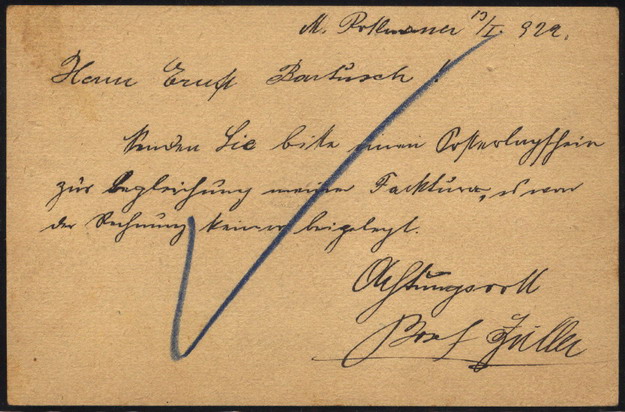 M. Rothwasser 13/I. 922.
Herrn Ernst Bartusch!
Senden Sie bitte einen Posterlagschein
zur Begleichung meiner Facktura, es war
der Rechnung keiner beigelegt.
Achtungsvoll
Josef